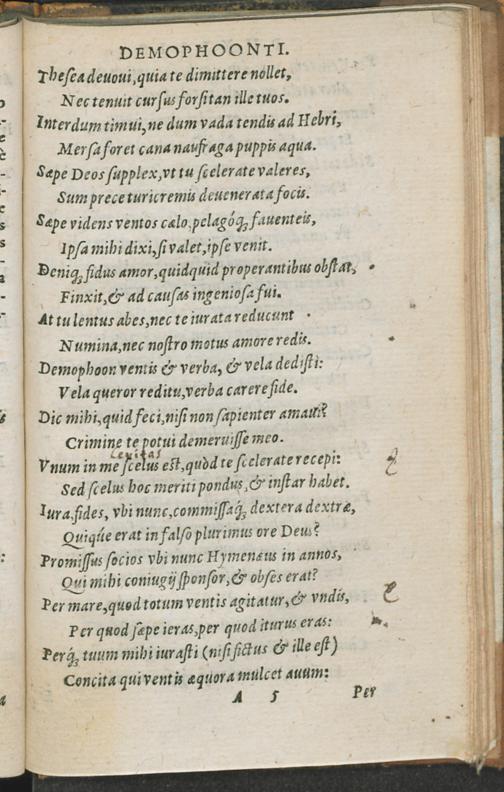 DEMOPHOONTI.
Theſea deuoui, quia te dimittere nollet,
Nec tenuit curſus forſitan ille tuos.
Interdum timui, ne dum vada tendis ad Hebri,
Merſa foret cana naufraga puppis aqua.
Sæpe Deos ſupplex, vt tu ſcelerate valeres,
Sum prece turicremis deuenerata focis.
Sæpe videns ventos cælo, pelagóq; fauenteis,
Ipſa mihi dixi, ſi valet, ipſe venit.
Deniq; fidus amor, quidquid properantibus obſtat,
Finxit, & ad cauſas ingenioſa fui.
At tu lentus abes, nec te iurata reducunt
Numina, nec noſtro motus amore redis.
Demophoon ventis & verba, & vela dediſti:
Vela queror reditu, verba carere fide.
Dic mihi, quid feci, niſi non ſapienter amaui?
Crimine te potui demeruiſſe meo.
Leuitas
Vnum in me ſcelus eſt, quòd te ſcelerate recepi:
Sed ſcelus hoc meriti pondus, & inſtar habet.
Iura, fides, vbi nunc, commiſſaq́; dextera dextræ,
Quiq́ue erat in falſo plurimus ore Deus?
Promiſſus ſocios vbi nunc Hymenæus in annos,
Qui mihi coniugij ſponſor, & obſes erat?
Per mare, quod totum ventis agitatur, & vndis,
Per quod ſæpe ieras, per quod iturus eras:
Perq́; tuum mihi iuraſti (niſi fictus & ille eſt)
Concita qui ventis æquora mulcet auum:
A 5 Per